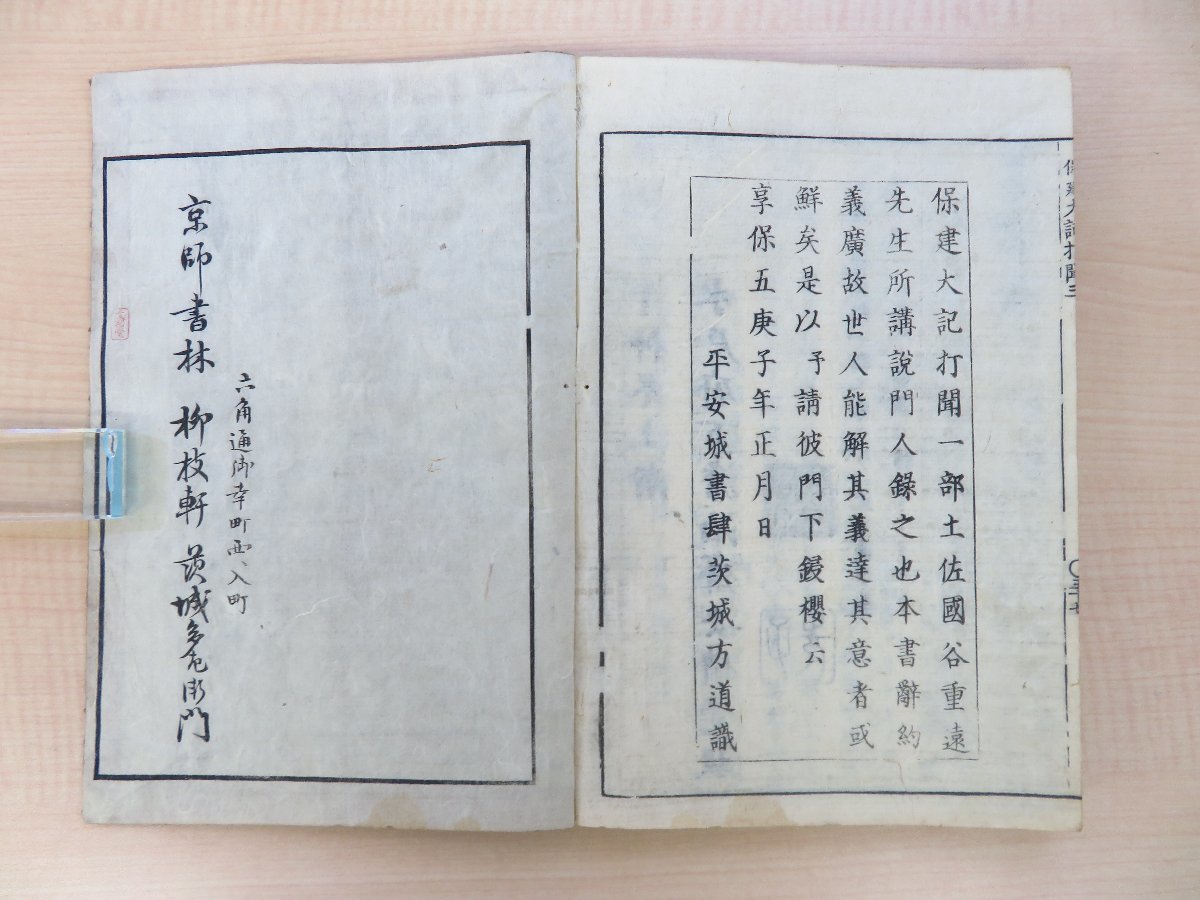 保建大記打聞一部土佐國谷重遠
先生所講說門人錄之也本書辭約
義廣故世人能解其義達其意者或
鮮矣是以予請彼門下鋟櫻云
享保五庚子年正月日
平安城書肆茨城方道識
六角通御幸町西へ入町
京師書林 柳枝軒 茨城多左衛門